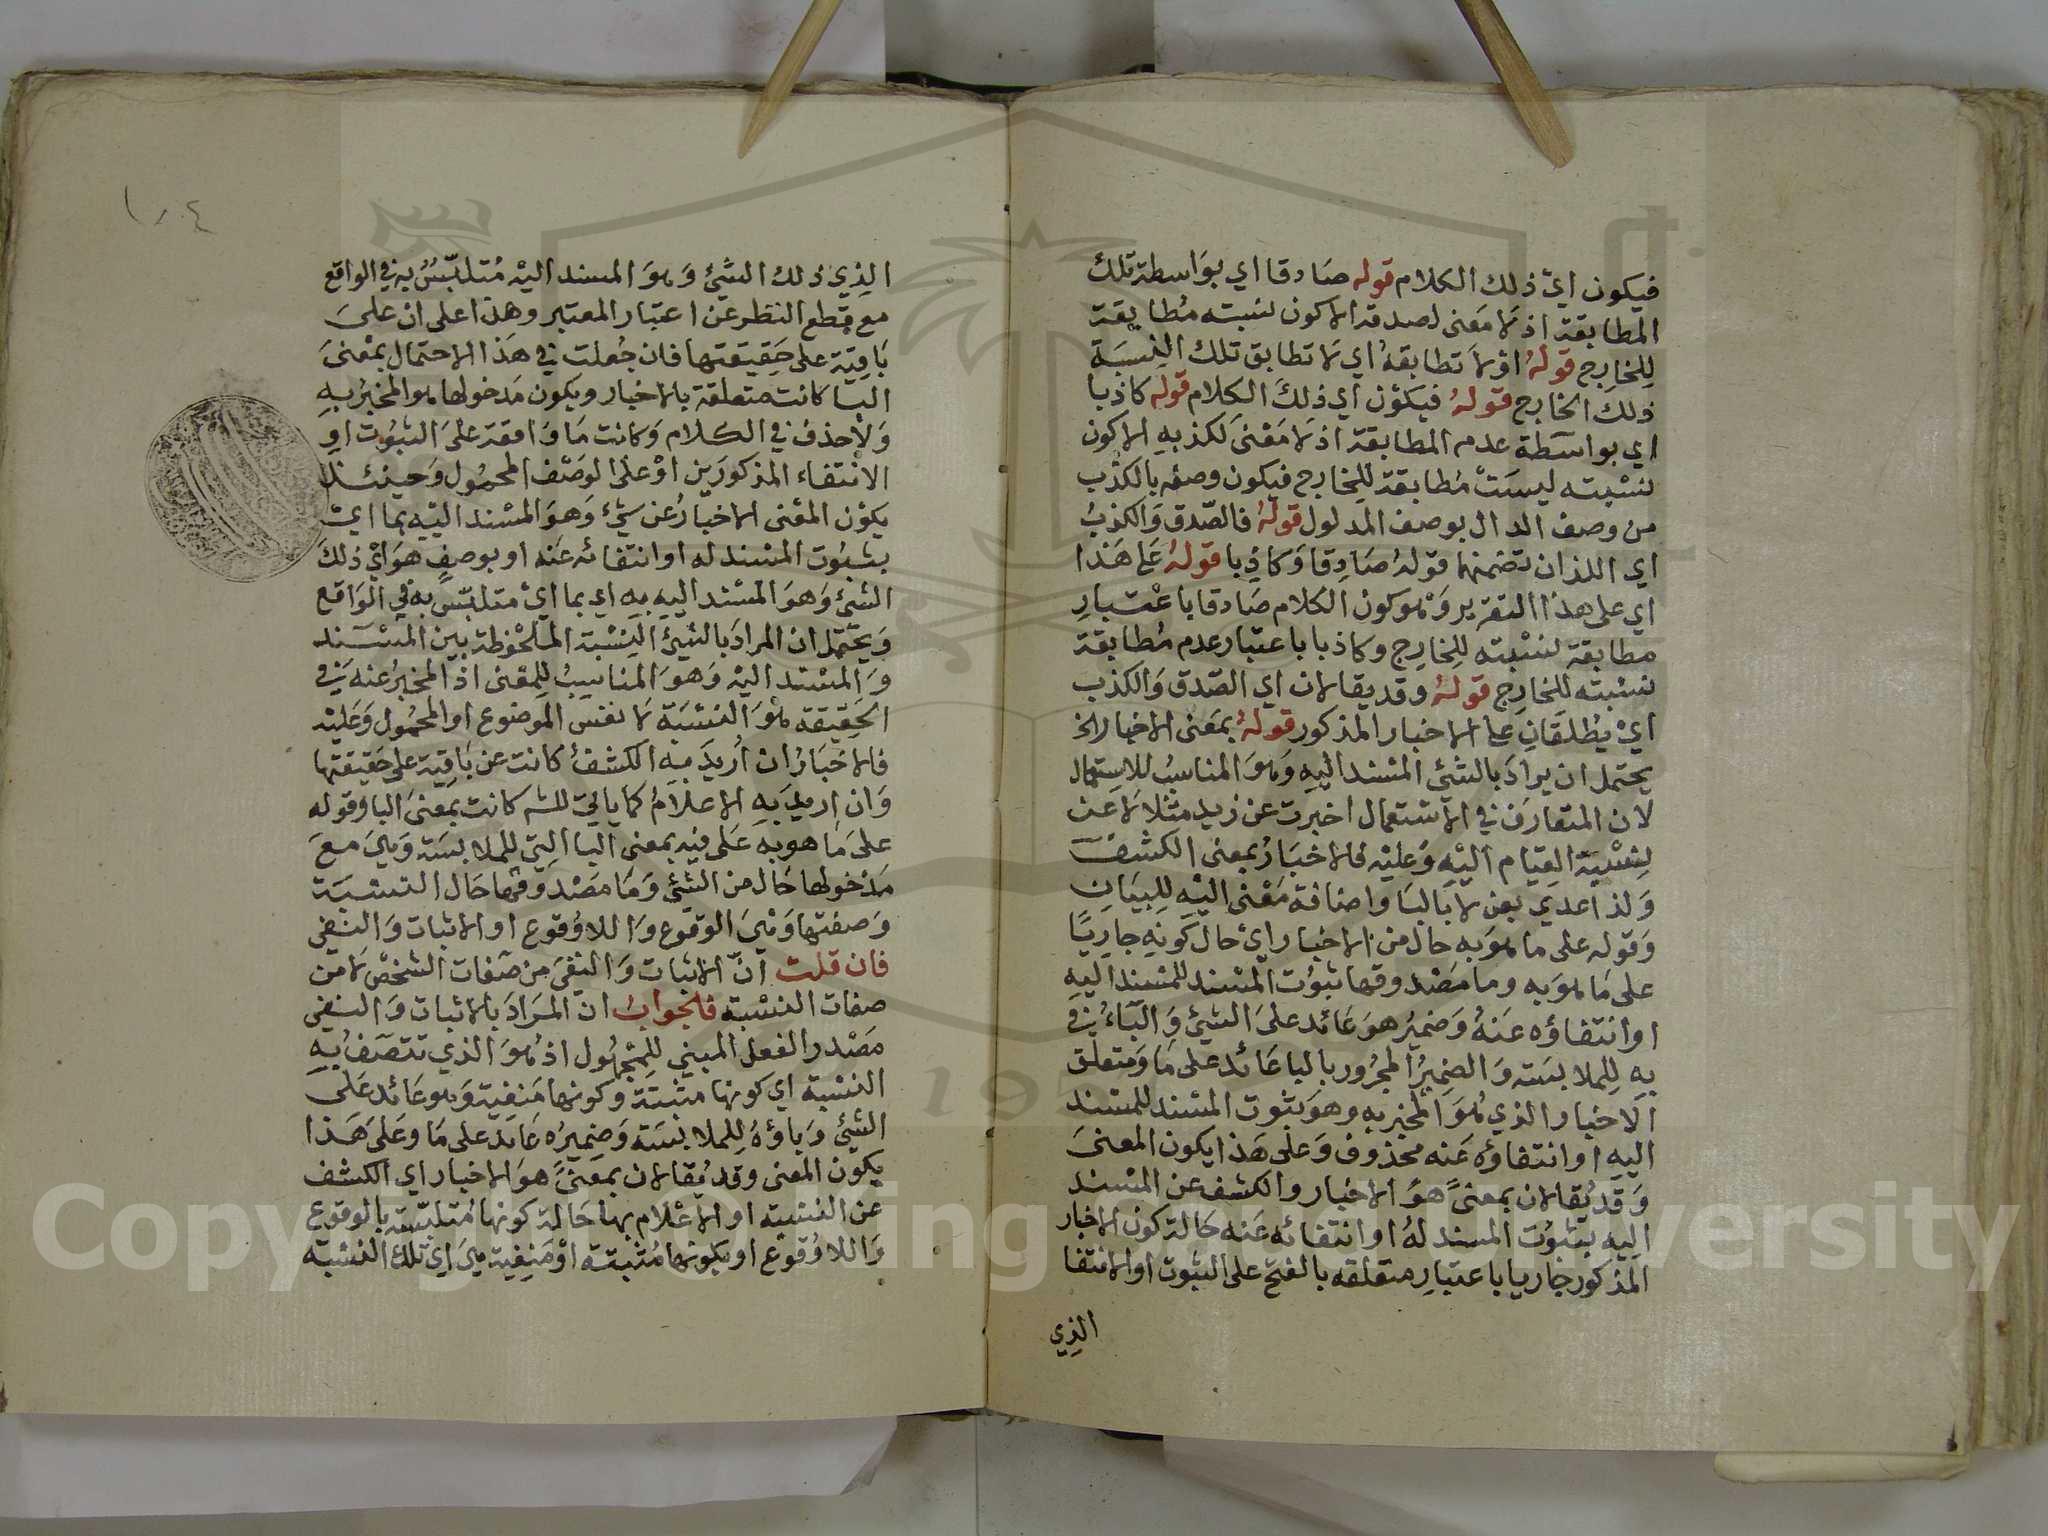 فيكون اي ذلك الكلام قوله صادقا اي بواسطة تلك
المطابقة اذ لا معنى لصدقه الا كون نسبته مطابقة
للخارج قوله او لا تطابقه اي لا تطابق تلك النسبة
ذلك الخارج قوله فيكون اي ذلك الكلام قوله كاذبا
اي بواسطة عدم المطابقة اذ لا معنى لكذبه الا كون
نسبته ليست مطابقة للخارج فيكون وصفه بالكذب
من وصف الدال بوصف المدلول قوله فالصدق والكذب
اي اللذان تضمنهما قوله صادقا وكاذبا قوله على هذا
اي على هذا التقرير وهو كون الكلام صادقا باعتبار
مطابقة نسبته للخارج وكاذبا باعتبار عدم مطابقة
نسبته للخارج قوله وقد يقالان اي الصدق والكذب
اي يطلقان على الاخبار المذكور قوله بمعنى الاخبار الخ
يحتمل ان يراد بالشئ المسند اليه وهو المناسب للاستعمال
لان المتعارف في الاستعمال اخبرت عن زيد مثلا لا عن
نسبة القيام اليه وعليه فالاخبار بمعنى الكشف
ولذا عدي بعن لا بالبا واضافة معنى اليه للبيان
وقوله على ما هو به حال من الاخبار اي حال كونه جاريا
على ما هو به وما مصدوقها ثبوت المسند للمسند اليه
او انتفاؤه عنه وضمير هو عائد على الشئ والباء في
به للملابسة والضمير المجرور بالبا عائد على ما ومتعلق
الاخبار الذي هو المخبر به وهو ثبوت المسند للمسند
اليه او انتفاؤه عنه محذوف وعلى هذا يكون المعنى
وقد يقالان بمعنى هو الاخبار والكشف عن المسند
اليه بثبوت المسند له او انتفائه عنه حالة كون الاخبار
المذكور جاريا باعتبار متعلقه بالفتح على الثبوت او الانتفا
الذي
١٠٤
الذي ذلك الشئ وهو المسند اليه متلبس به في الواقع
مع قطع النظر عن اعتبار المعتبر وهذا على ان على
باقية على حقيقتها فان جعلت في هذا الاحتمال بمعنى
البا كانت متعلقة بالاخبار ويكون مدخولها هو المخبر به
ولا حذف في الكلام وكانت ما واقعة على الثبوت او
الانتفاء المذكورين او على الوصف المحمول وحينئذ
يكون المعنى الاخبار عن شئ وهو المسند اليه بما اي
بثبوت المسند له او انتفائه عنه او بوصف هو اي ذلك
الشئ وهو المسند اليه به اي بما اي متلبس به في الواقع
ويحتمل ان المراد بالشئ النسبة الملحوظة بين المسند
والمسند اليه وهو المناسب للمعنى اذ المخبر عنه في
الحقيقة هو النسبة لا نفس الموضوع او المحمول وعليه
فالاخبار ان اريد به الكشف كانت عن باقية على حقيقتها
وان اريد به الاعلام كما ياتي للشم كانت بمعنى البا وقوله
على ما هو به على فيه بمعنى البا التي للملابسة وهي مع
مدخولها حال من الشئ وما مصدوقها حال النسبة
وصفتها وهي الوقوع واللاوقوع او الاثبات والنفي
فان قلت ان الاثبات والنفي من صفات الشخص لا من
صفات النسبة فالجواب ان المراد بالاثبات والنفي
مصدر الفعل المبني للمجهول اذ هو الذي تتصف به
النسبة اي كونها مثبتة وكونها منفية وهو عائد على
الشئ وباؤه للملابسة وضميره عائد على ما وعلى هذا
يكون المعنى وقد يقالان بمعنى هو الاخبار اي الكشف
عن النسبة او الاعلام بها حالة كونها متلبسة بالوقوع
واللاوقوع او بكونها مثبتة او منفية هي اي تلك النسبة
Copyright © King Saud University